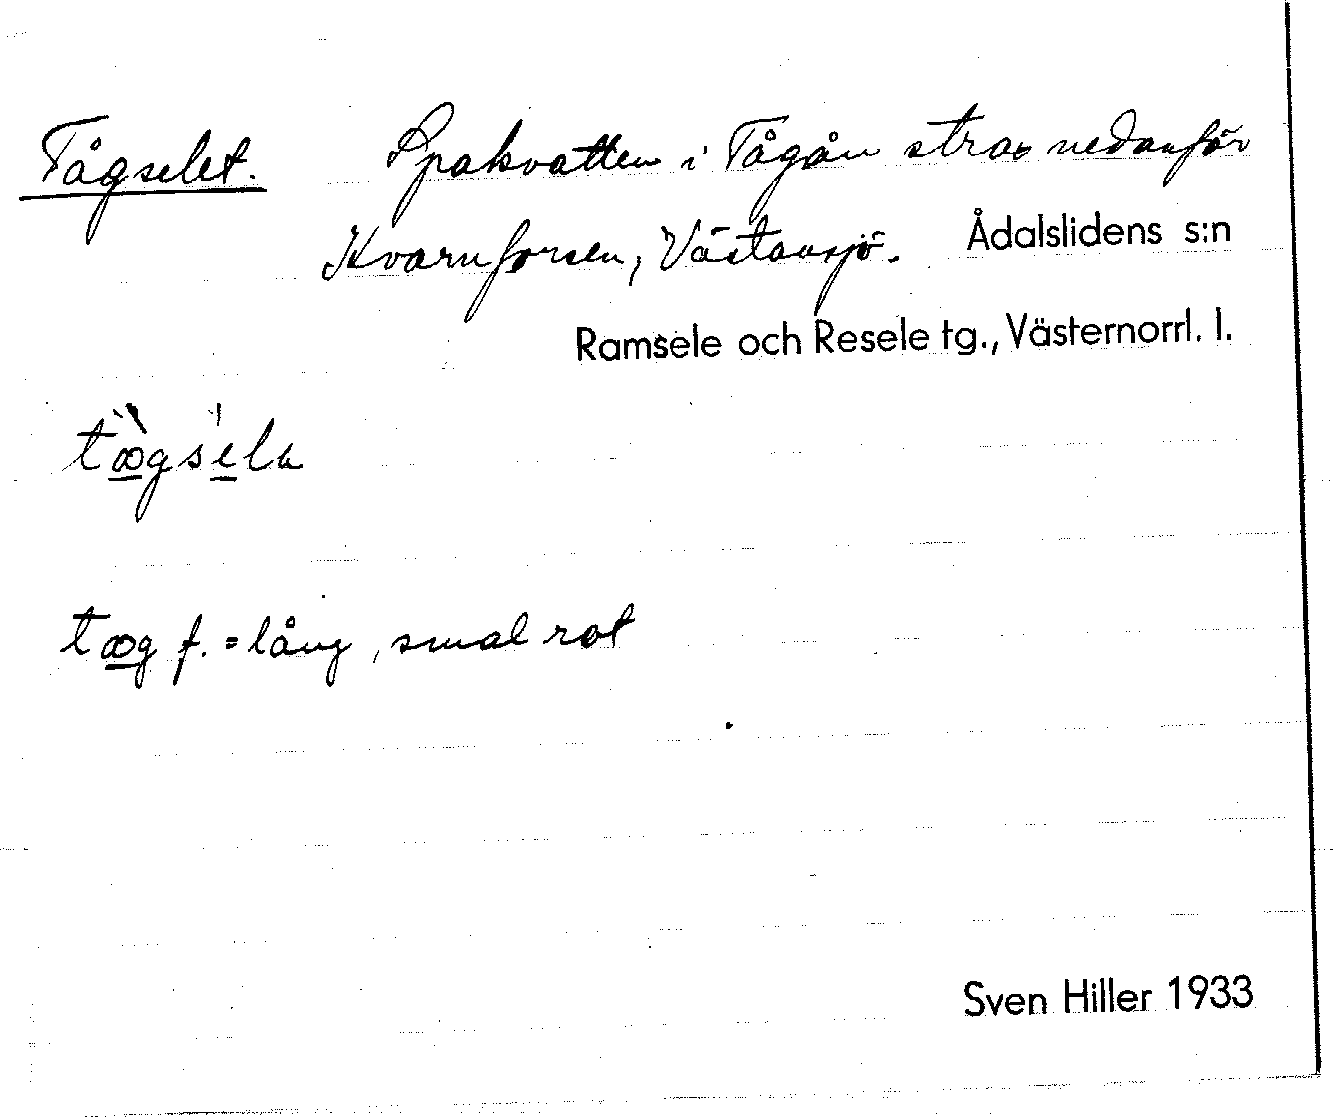 Tågselet. Spakvatten i Tågån strax nedanför
Kvarnforsen, Västansjö. Ådalslidens s:n
Ramsele och Resele tg., Västernorrl. l.
tœ̀gsela
tœg f. = lång, smal rot
Sven Hiller 1933